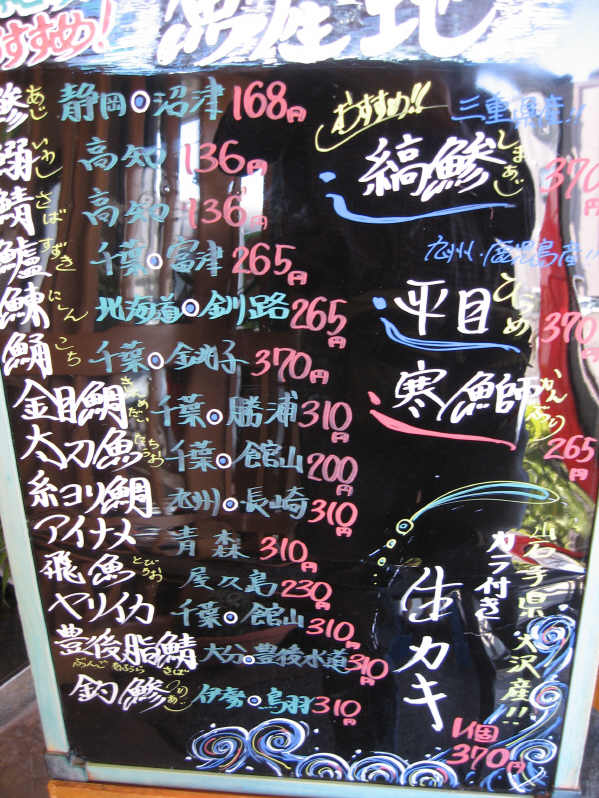 おすすめ!
魚産地
鯵 あじ 静岡・沼津 168円
鰯 いわし 高知 136円
鯖 さば 高知 136円
鱸 すずき 千葉・富津 265円
鰊 にしん 北海道・釧路 265円
こち 千葉・銚子 370円
金目鯛 きんめだい 千葉・勝浦 310円
太刀魚 たちうお 千葉・館山 200円
糸ヨリ鯛 九州・長崎 310円
アイナメ 青森 310円
飛魚 とびうお 屋久島 230円
ヤリイカ 千葉・館山 310円
豊後脂鯖 さば 大分・豊後水道 310円
釣鯵 つりあじ 伊勢・鳥羽 310円
おすすめ!!
三重県産!!
縞鯵 しまあじ 370円
九州・鹿児島産!!
平目 ひらめ 370円
寒魚師 かんぶり 265円
岩手県大沢産!!
カラ付き
生カキ
1個
370円